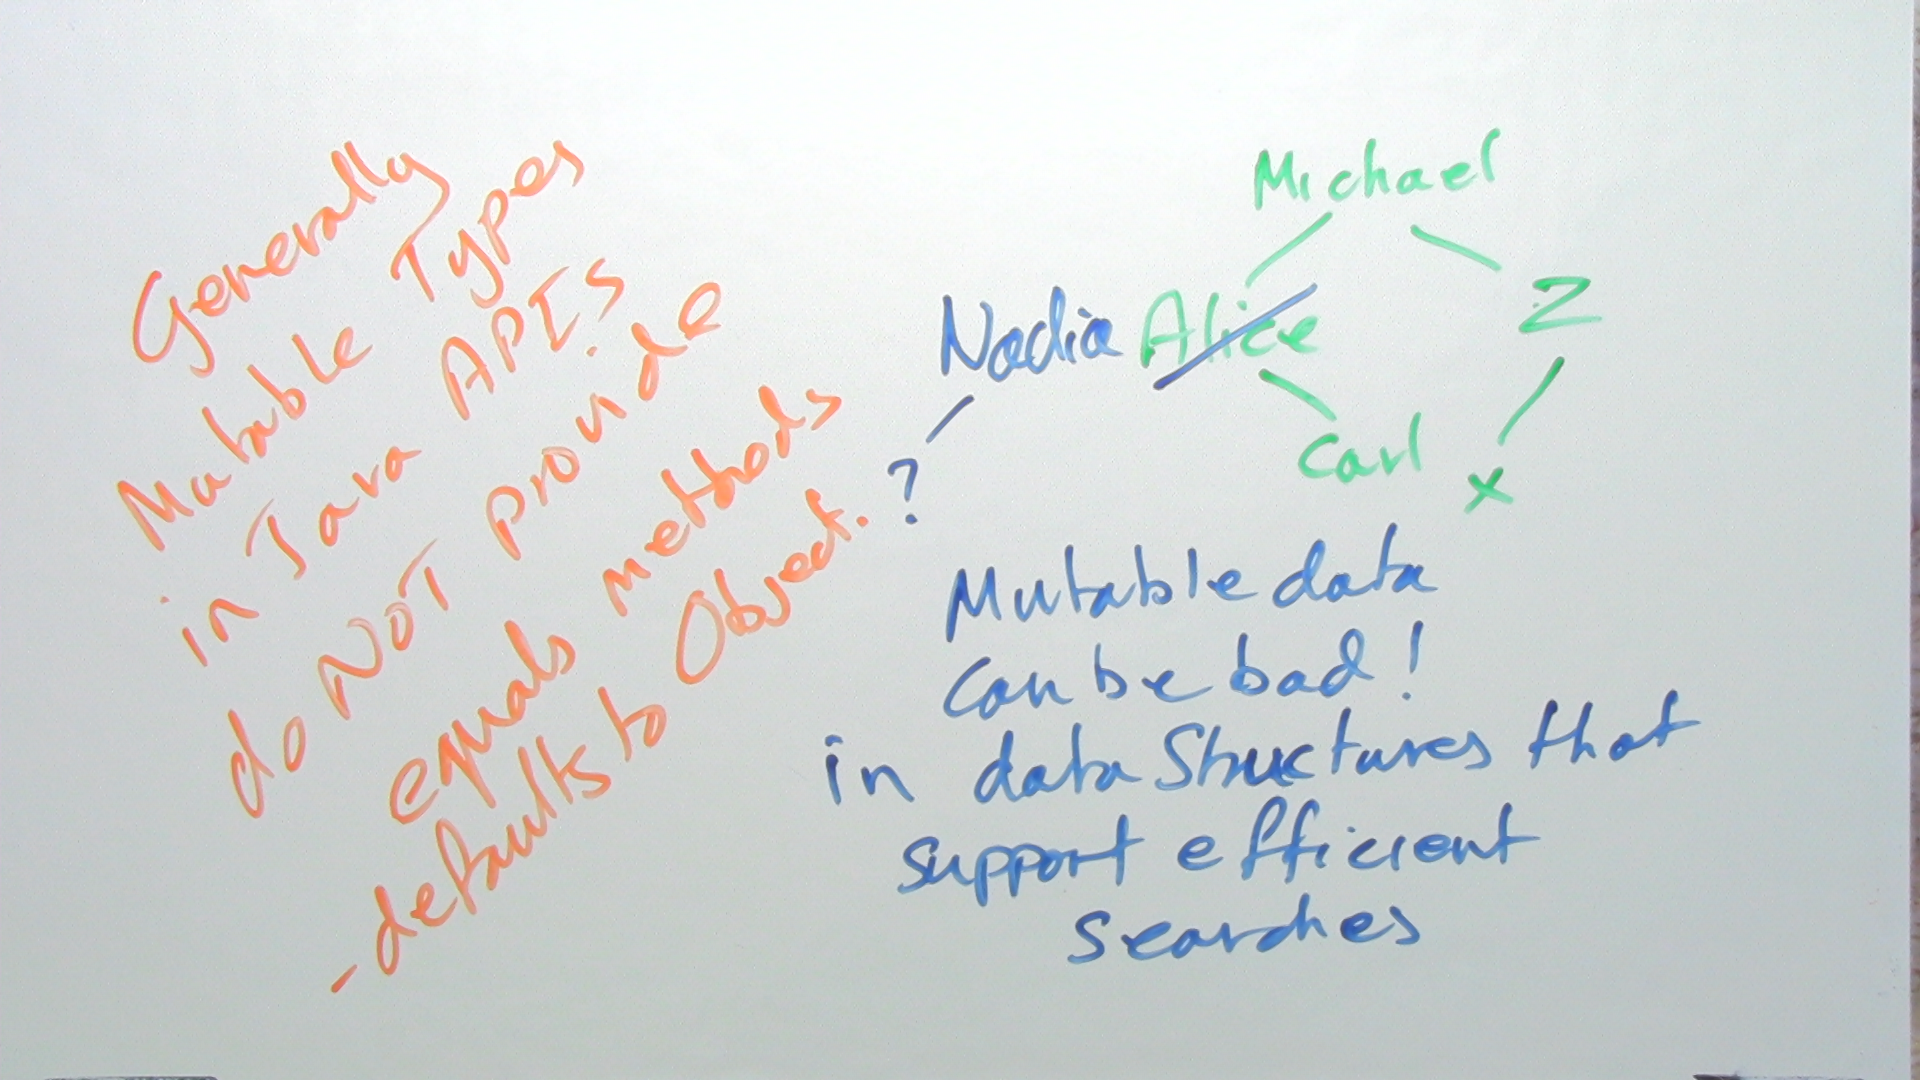 Generally
Mutable Types
in Java APIs
do NOT provide
equals methods
- defaults to Object.
Michael
Nadia Alice
Z
?
Carl
x
Mutable data
can be bad!
in data structures that
support efficient
searches